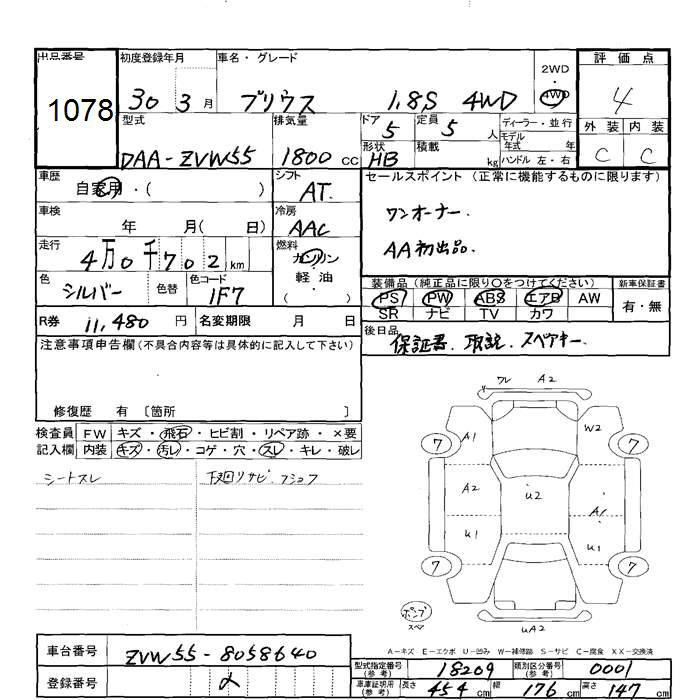 出品番号 初度登録年月 車名・グレード 2WD 評価点
1078 30年 3月 プリウス 1.8S 4WD 4WD 4
型式 排気量 ドア 定員 ディーラー・並行 外装 内装
DAA-ZVW55 1800cc 5 5人 モデル年式 年式 C C
形状 HB 積載 kg ハンドル 左・右
車歴 シフト セールスポイント (正常に機能するものに限ります)
自家用・( ) AT.
車検 年 月( 日) 冷房 AAC ワンオーナー.
走行 4万0千702km 燃料 ガソリン 軽油 ( ) AA初出品.
色 シルバー 色替 色コード 1F7
装備品 (純正品に限り○をつけてください) 新車保証書
PS PW ABS エアB AW 有・無
SR ナビ TV カワ
R券 11,480円 名変期限 月 日 後日品
保証書. 取説. スペアキー.
注意事項申告欄(不具合内容等は具体的に記入して下さい)
修復歴 有 〔箇所 〕
検査員 FW キズ・飛石・ヒビ割・リペア跡・×要
記入欄 内装 キズ・汚レ・コゲ・穴・スレ・キレ・破レ
シートスレ 下廻リサビ.
ワレ A2
A1 W2
7 7
A2 U2 A1
U1 U1
7 7
ポンプ
スペア
UA2
A-キズ E-エクボ U-凹み W-補修跡 S-サビ C-腐食 XX-交換済
車台番号 ZVW55-8058640
登録番号
型式指定番号(参考) 18209 類別区分番号(参考) 0001
車庫証明用(参考) 長さ 454cm 幅 176cm 高さ 147cm